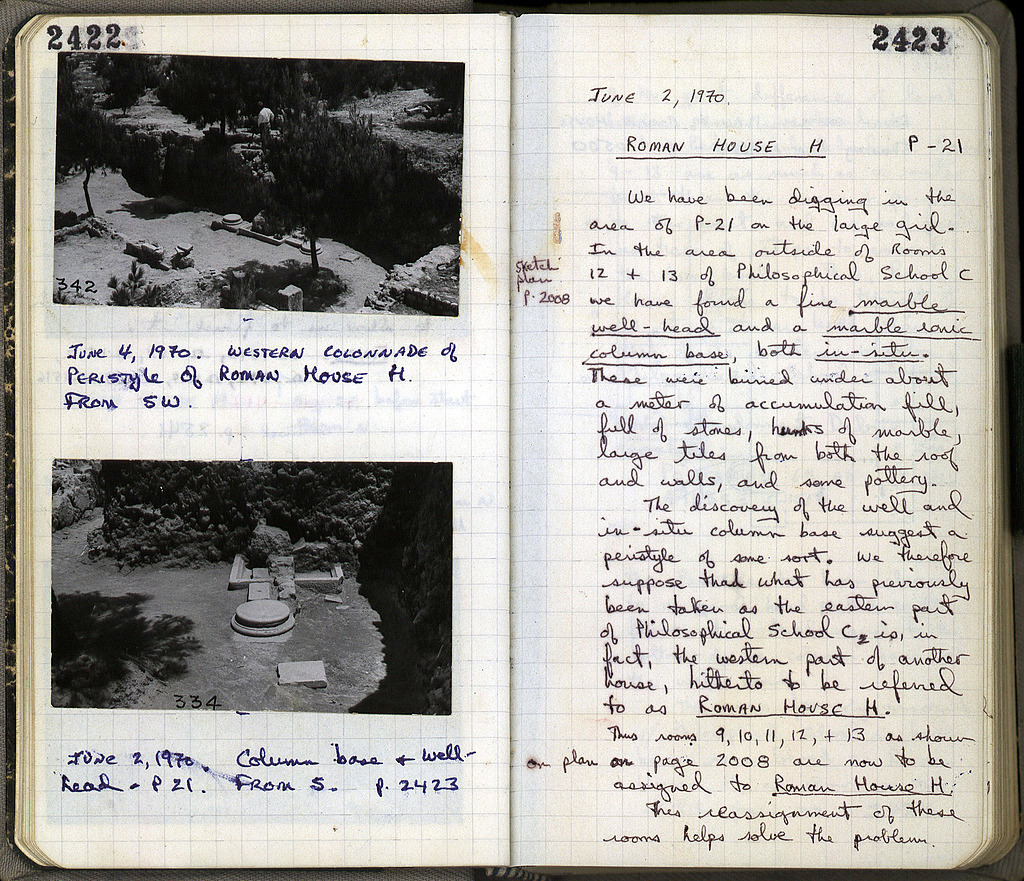 2422
342
JUNE 4, 1970. WESTERN COLONNADE of
PERISTYLE of ROMAN HOUSE H.
FROM SW.
334
JUNE 2, 1970. Column base + well-
head - P 21. FROM S. p. 2423
2423
JUNE 2, 1970.
ROMAN HOUSE H P-21
We have been digging in the
area of P-21 on the large grid.
In the area outside of Rooms
12 + 13 of Philosophical School C
Sketch
plan
p. 2008
we have found a fine marble
well-head and a marble ionic
column base, both in-situ.
These were buried under about
a meter of accumulation fill,
full of stones, hunks of marble,
large tiles from both the roof
and walls, and some pottery.
The discovery of the well and
in-situ column base suggest a
peristyle of some sort. We therefore
suppose that what has previously
been taken as the eastern part
of Philosophical School C, is, in
fact, the western part of another
house, hitherto to be referred
to as ROMAN HOUSE H.
Thus rooms 9, 10, 11, 12, + 13 as shown
on plan on page 2008 are now to be
assigned to Roman House H.
This reassignment of these
rooms helps solve the problem.